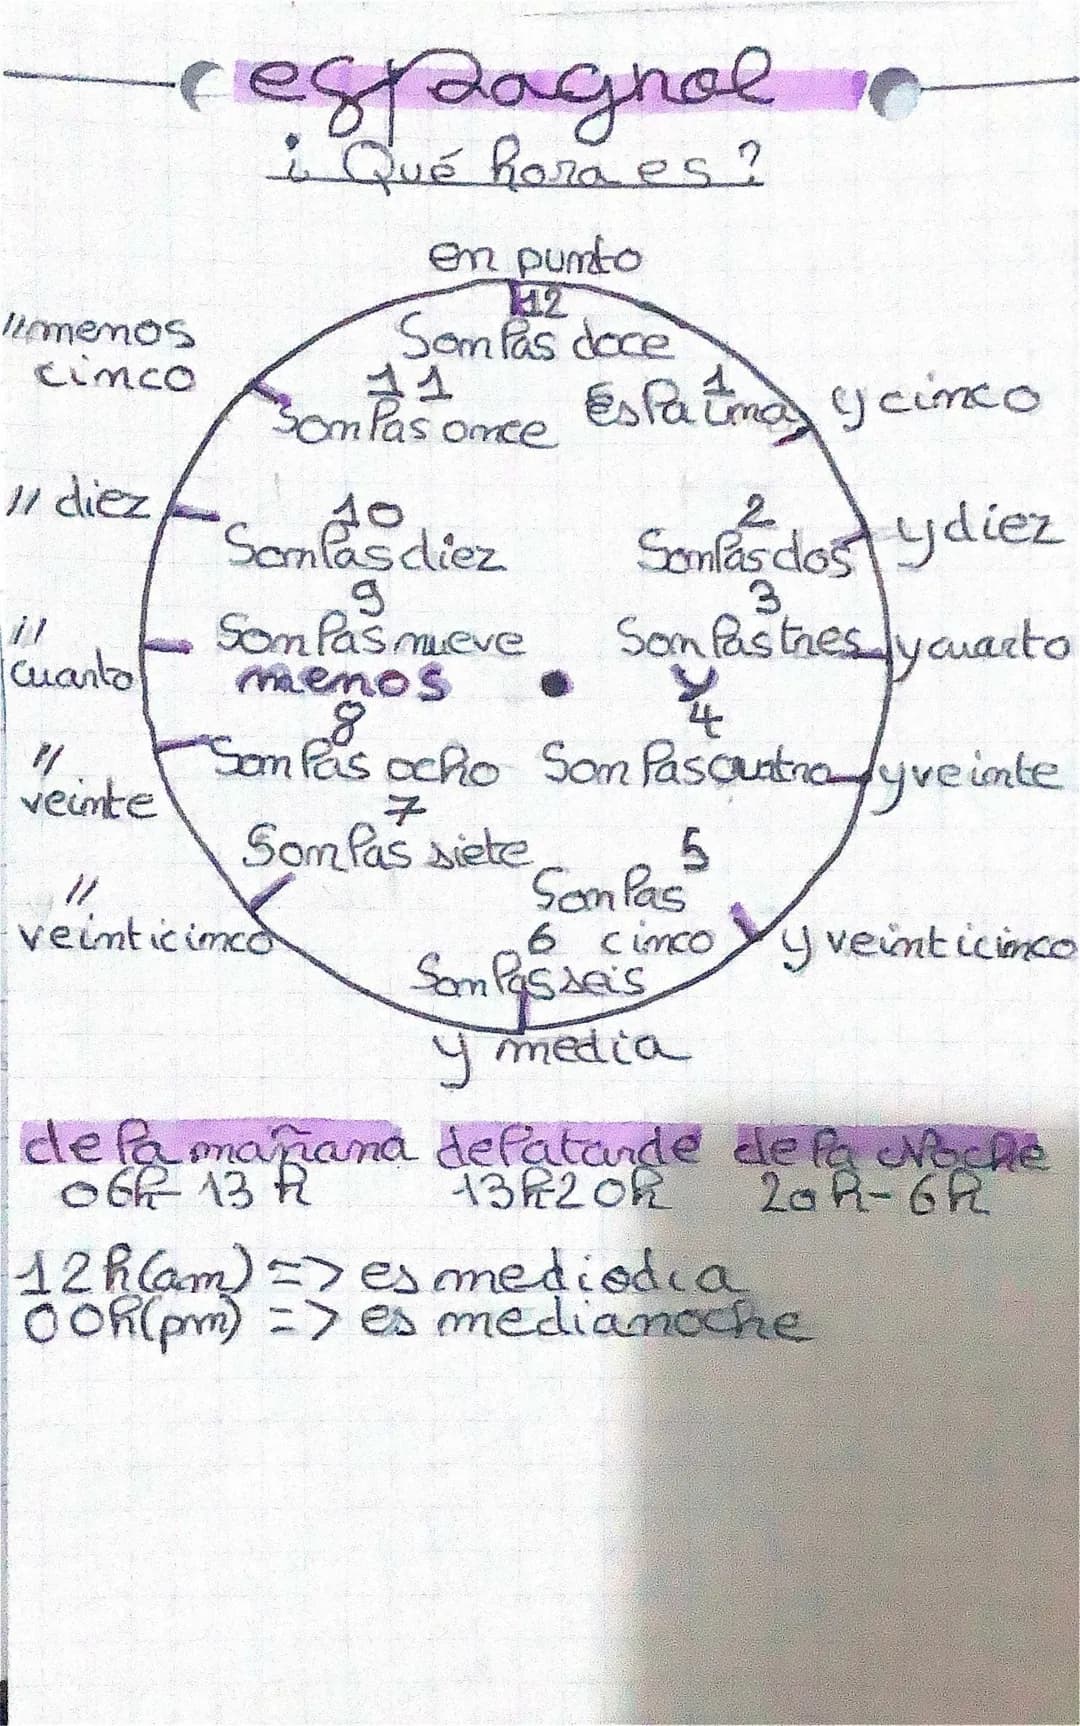 espagnol
¿ Qué hora es ?
en punto
12
Son las doce
// menos
cinco
11
Son las once
1
Es la una
y cinco
// diez
10
Son las diez
2
Son las dos
y diez
//
cuarto
9
Son las nueve
3
Son las tres
y cuarto
menos
y
//
veinte
8
Son las ocho
4
Son las cuatro
y veinte
7
Son las siete
5
Son las
cinco
//
veinticinco
6
Son las seis
y veinticinco
y media
de la mañana de la tarde de la Noche
06h-13h 13h-20h 20h-6h
12h(am) => es mediodia
00h(pm) => es medianoche